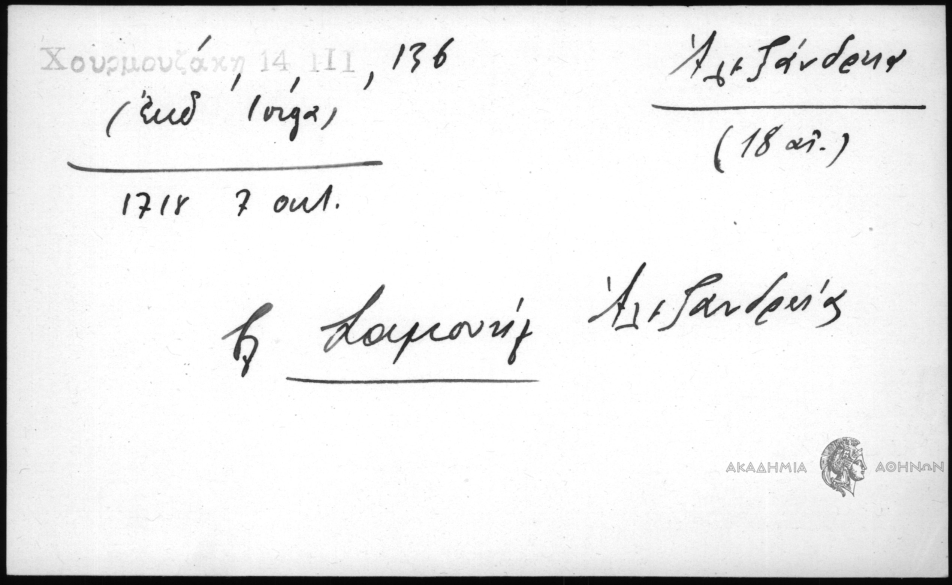 Χουρμουζάκη 14 III, 136
(ἐκδ
1718 7 οκτ.
Ἀλεξάνδρεια
(18 αἰ.)
Σαμουήλ Ἀλεξανδρείας
ΑΚΑΔΗΜΙΑ ΑΘΗΝΩΝ